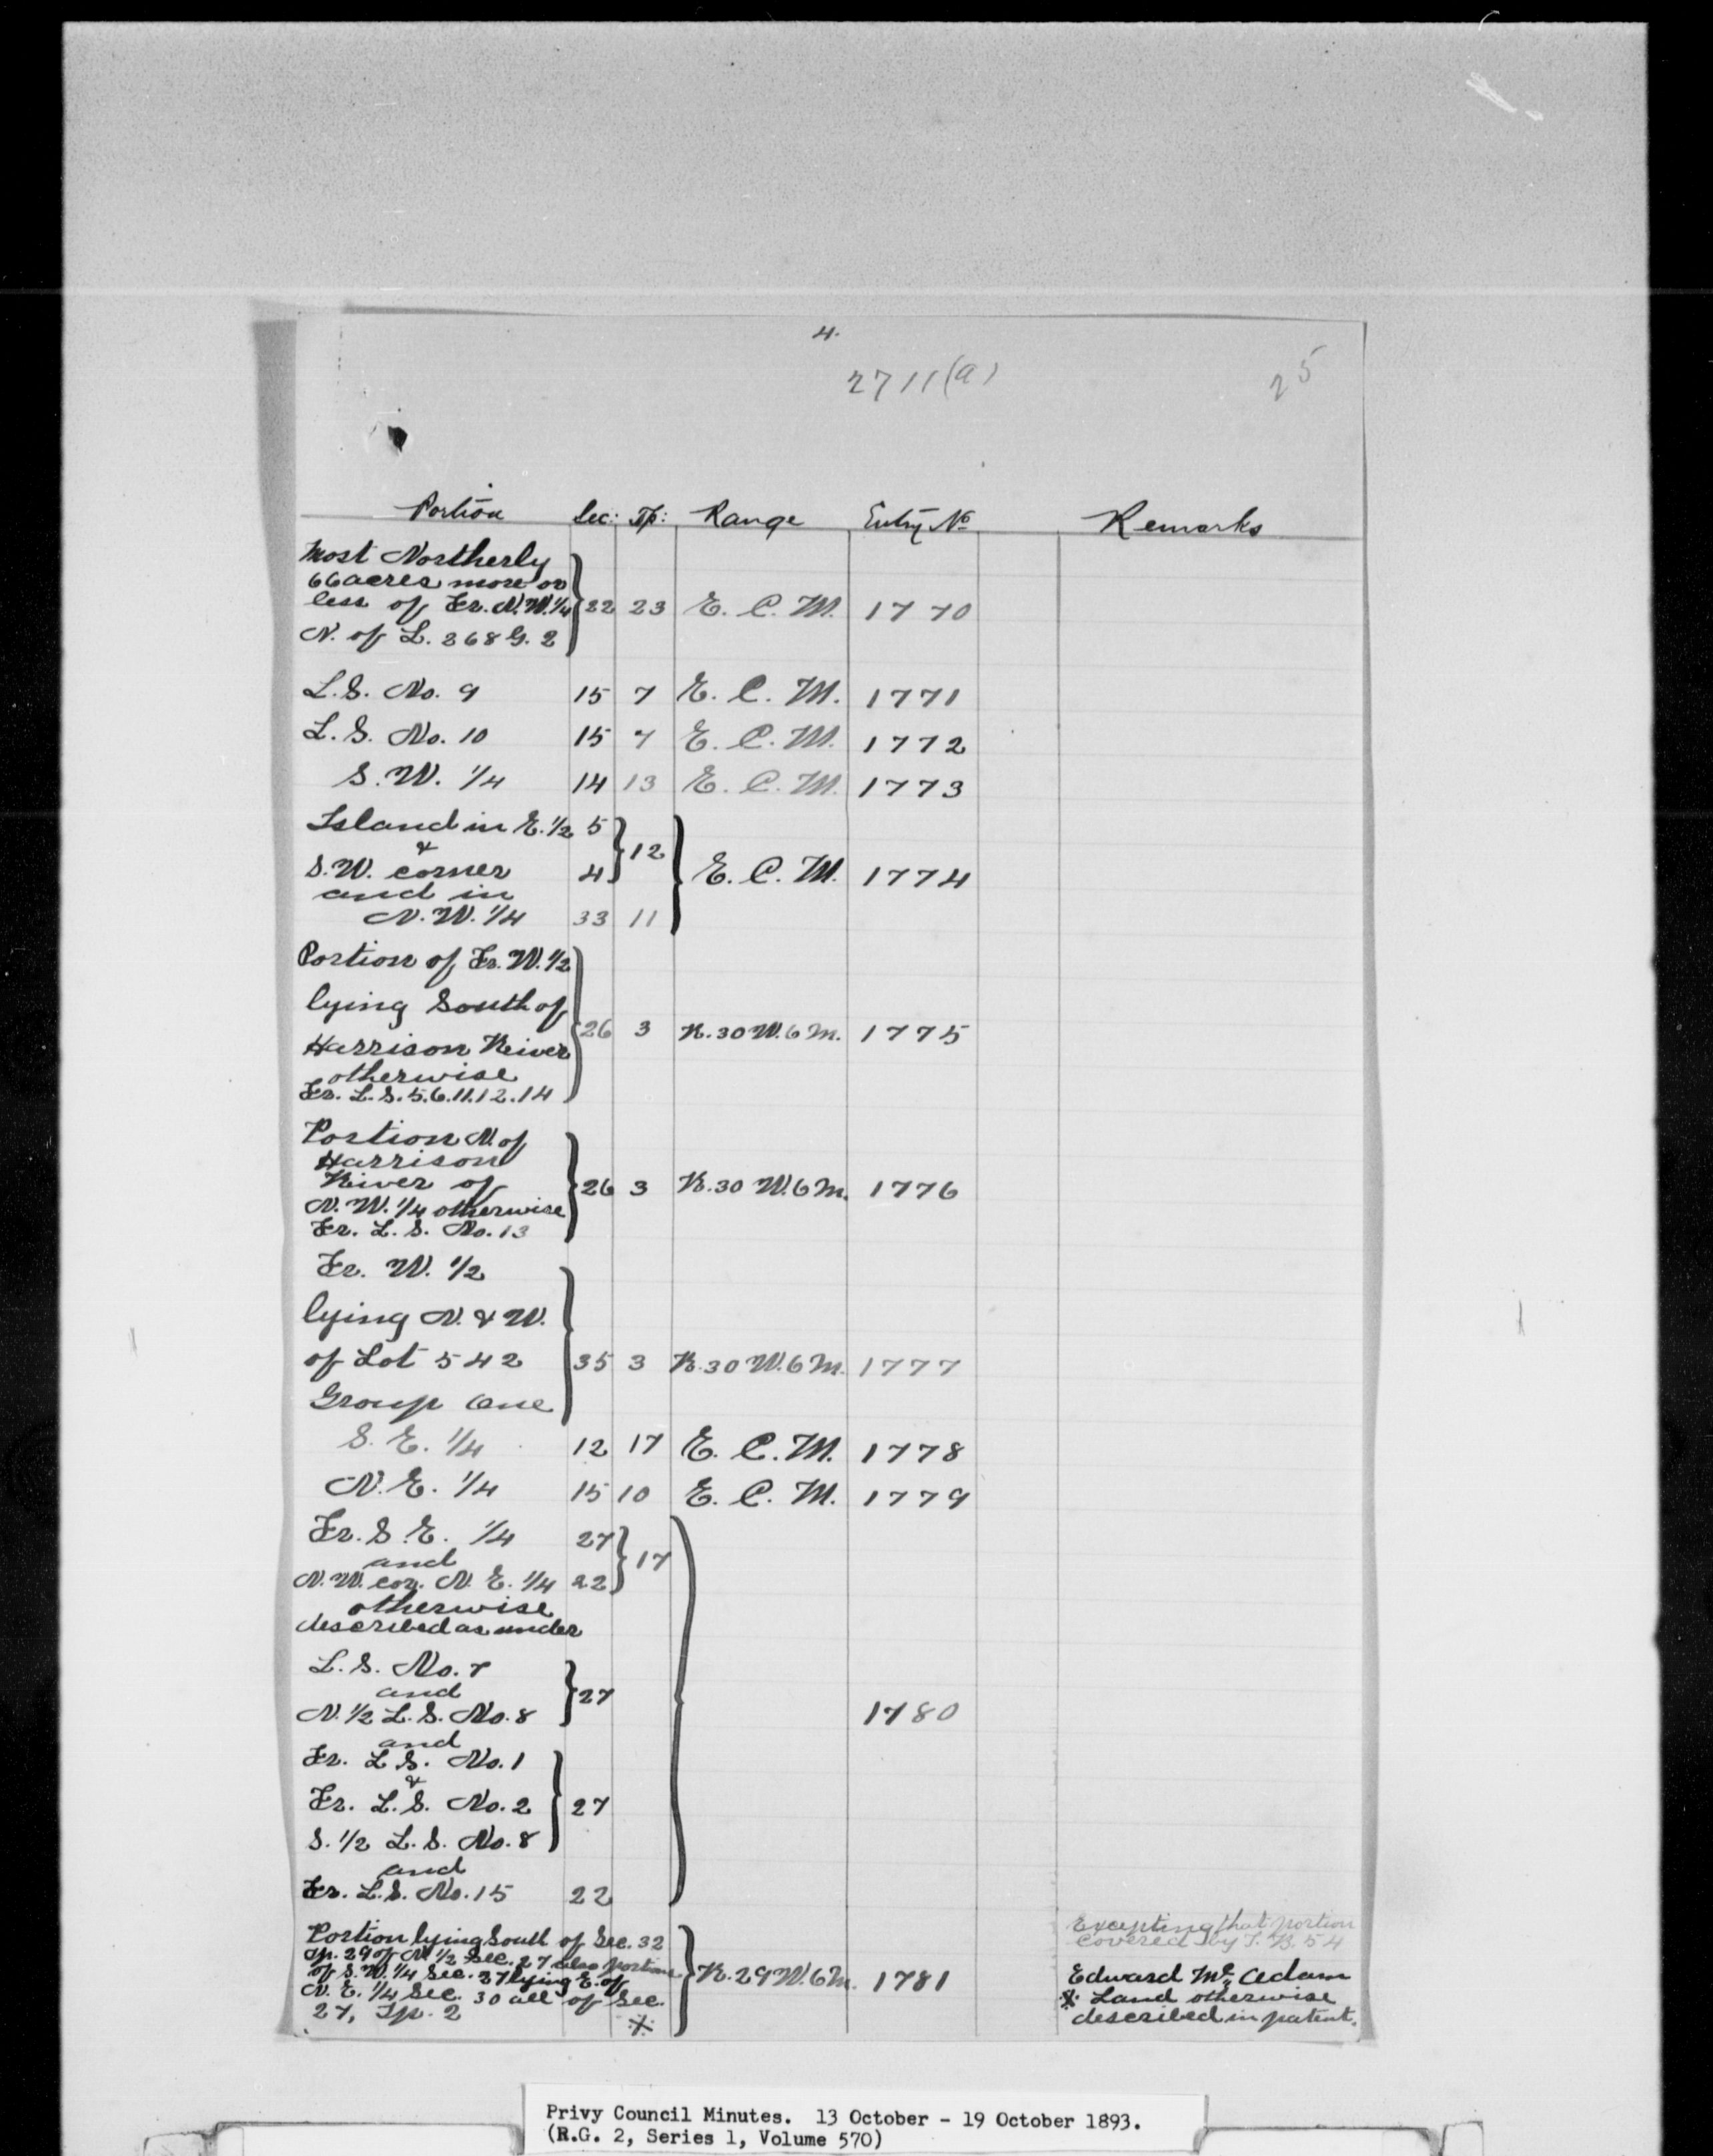 4.
2711(a)
25
Portion Sec: Tp: Range Entry No Remarks
Most Northerly
66 acres more or
less of Fr. N.W. 1/4 22 23 E. C. M. 1770
N. of L. 368 G. 2
L.S. No. 9 15 7 E. C. M. 1771
L.S. No. 10 15 7 E. C. M. 1772
S.W. 1/4 14 13 E. C. M. 1773
Island in E. 1/2 5
& 12
S.W. corner 4 E. C. M. 1774
and in
N.W. 1/4 33 11
Portion of Fr. W. 1/2
lying South of
Harrison River 26 3 R. 30 W. 6 M. 1775
otherwise
Fr. L.S. 5.6.11.12.14
Portion N. of
Harrison
River of 26 3 R. 30 W. 6 M. 1776
N.W. 1/4 otherwise
Fr. L. S. No. 13
Fr. W. 1/2
lying N. & W.
of Lot 542 35 3 R. 30 W. 6 M. 1777
Group One
S. E. 1/4 12 17 E. C. M. 1778
N. E. 1/4 15 10 E. C. M. 1779
Fr. S. E. 1/4 27
and 17
N.W. cor. N. E. 1/4 22
otherwise
described as under
L. S. No. 7
and 27
N. 1/2 L. S. No. 8 1780
and
Fr. L. S. No. 1
&
Fr. L. S. No. 2 27
S. 1/2 L. S. No. 8
and
Fr. L.S. No. 15 22
Portion lying South of Sec. 32 Excepting that portion
Tp. 29 of N 1/2 Sec. 27 also portion covered by T. B. 54
of S.W. 1/4 Sec. 27 lying E. of R. 29 W. 6 M. 1781 Edward McAdam
N. E. 1/4 Sec. 30 all of Sec. * Land otherwise
27, Tp. 2 * described in patent.
Privy Council Minutes. 13 October - 19 October 1893.
(R.G. 2, Series 1, Volume 570)